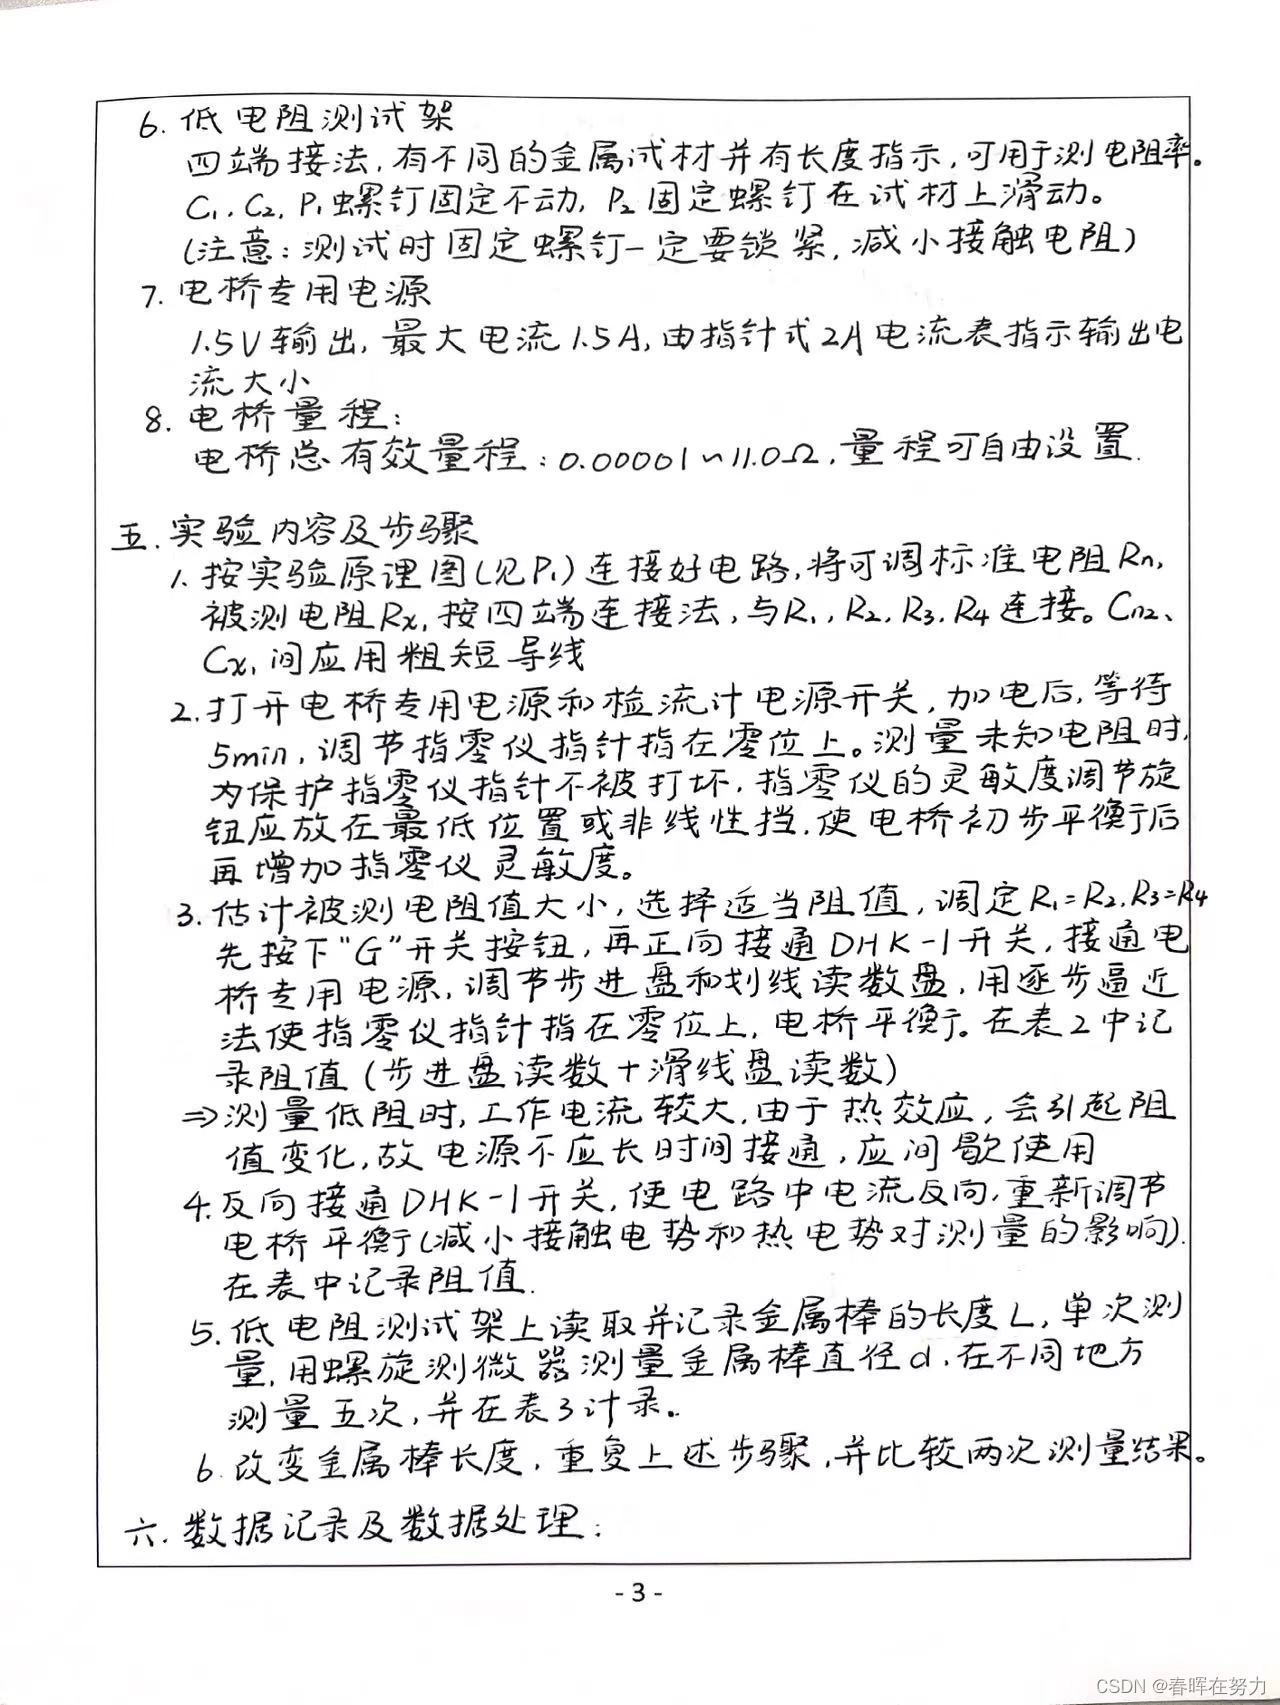 6. 低电阻测试架
四端接法,有不同的金属试材并有长度指示,可用于测电阻率。
C₁. C₂, P₁螺钉固定不动, P₂固定螺钉在试材上滑动。
(注意:测试时固定螺钉一定要锁紧,减小接触电阻)
7. 电桥专用电源
1.5V输出,最大电流1.5A,由指针式2A电流表指示输出电
流大小
8. 电桥量程:
电桥总有效量程:0.00001~11.0Ω,量程可自由设置.
五.实验内容及步骤
1. 按实验原理图(见P₁)连接好电路,将可调标准电阻Rn,
被测电阻Rx,按四端连接法,与R₁,R₂,R₃,R₄连接。Cn₂、
Cx₁间应用粗短导线
2. 打开电桥专用电源和检流计电源开关,加电后,等待
5min,调节指零仪指针指在零位上。测量未知电阻时,
为保护指零仪指针不被打坏,指零仪的灵敏度调节旋
钮应放在最低位置或非线性挡,使电桥初步平衡后
再增加指零仪灵敏度。
3. 估计被测电阻值大小,选择适当阻值,调定R₁=R₂,R₃=R₄
先按下"G"开关按钮,再正向接通DHK-1开关,接通电
桥专用电源,调节步进盘和划线读数盘,用逐步逼近
法使指零仪指针指在零位上,电桥平衡。在表2中记
录阻值(步进盘读数+滑线盘读数)
⇒测量低阻时,工作电流较大,由于热效应,会引起阻
值变化,故电源不应长时间接通,应间歇使用
4. 反向接通DHK-1开关,使电路中电流反向,重新调节
电桥平衡(减小接触电势和热电势对测量的影响).
在表中记录阻值.
5. 低电阻测试架上读取并记录金属棒的长度L,单次测
量,用螺旋测微器测量金属棒直径d,在不同地方
测量五次,并在表3计录。
6. 改变金属棒长度,重复上述步骤,并比较两次测量结果。
六.数据记录及数据处理:
- 3 -
CSDN @春晖在努力